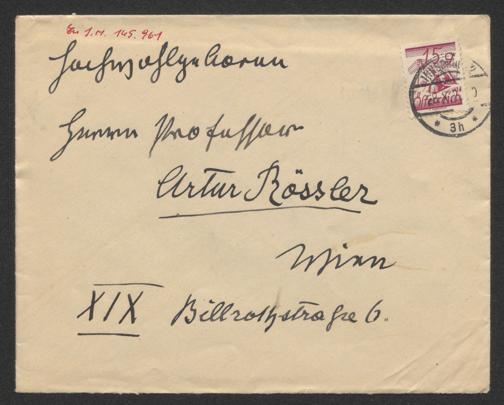 Zu I.N. 145.961
Hochwohlgeboren
Herrn Professor
Artur Rössler
Wien
XIX Billrothstraße 6.
15 g
3h